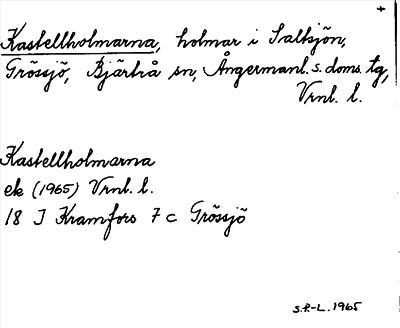 +
Kastellholmarna, holmar i Saltsjön,
Grössjö, Bjärtrå sn, Ångermanl. s. doms. tg,
Vrnl. l.
Kastellholmarna
ek (1965) Vrnl. l.
18 I Kramfors 7 c Grössjö
S.P.-L. 1965